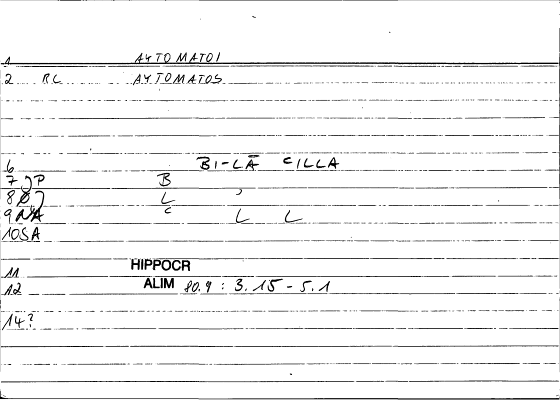 1 AYTOMATOI
2 RL AYTOMATOS
6 BI-LĀ CILLA
7 JP B
8 L ,
9 NA C L L
10 SA
11 HIPPOCR
12 ALIM 80.9 : 3.15 - 5.1
14?